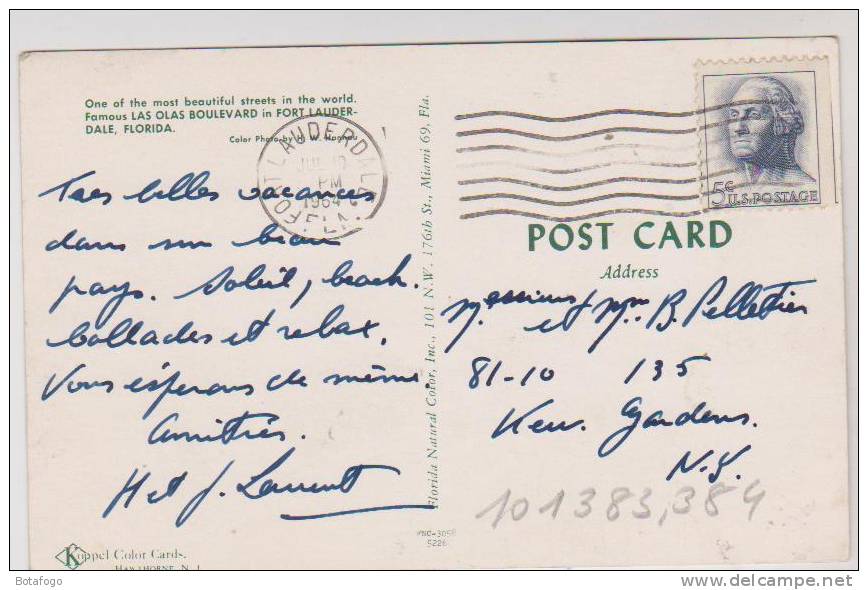 One of the most beautiful streets in the world.
Famous LAS OLAS BOULEVARD in FORT LAUDER-
DALE, FLORIDA.
Color Photo by H. W. Hannau
FORT LAUDERDALE
PM
1964
FLA.
5c
U.S. POSTAGE
Tres belles vacances
dans un beau
pays. Soleil, beach.
ballades et relax.
Vous éspérons de même.
Amitiés.
H et J. Laurent
Koppel Color Cards.
HAWTHORNE, N. J.
Florida Natural Color, Inc., 101 N.W. 176th St., Miami 69, Fla.
FNC-3058
5226
POST CARD
Address
Messieurs
et Mm B. Pelletier
81-10 135
Kew. Gardens.
N.Y.
101383,384
Botafogo
www.delcampe.net